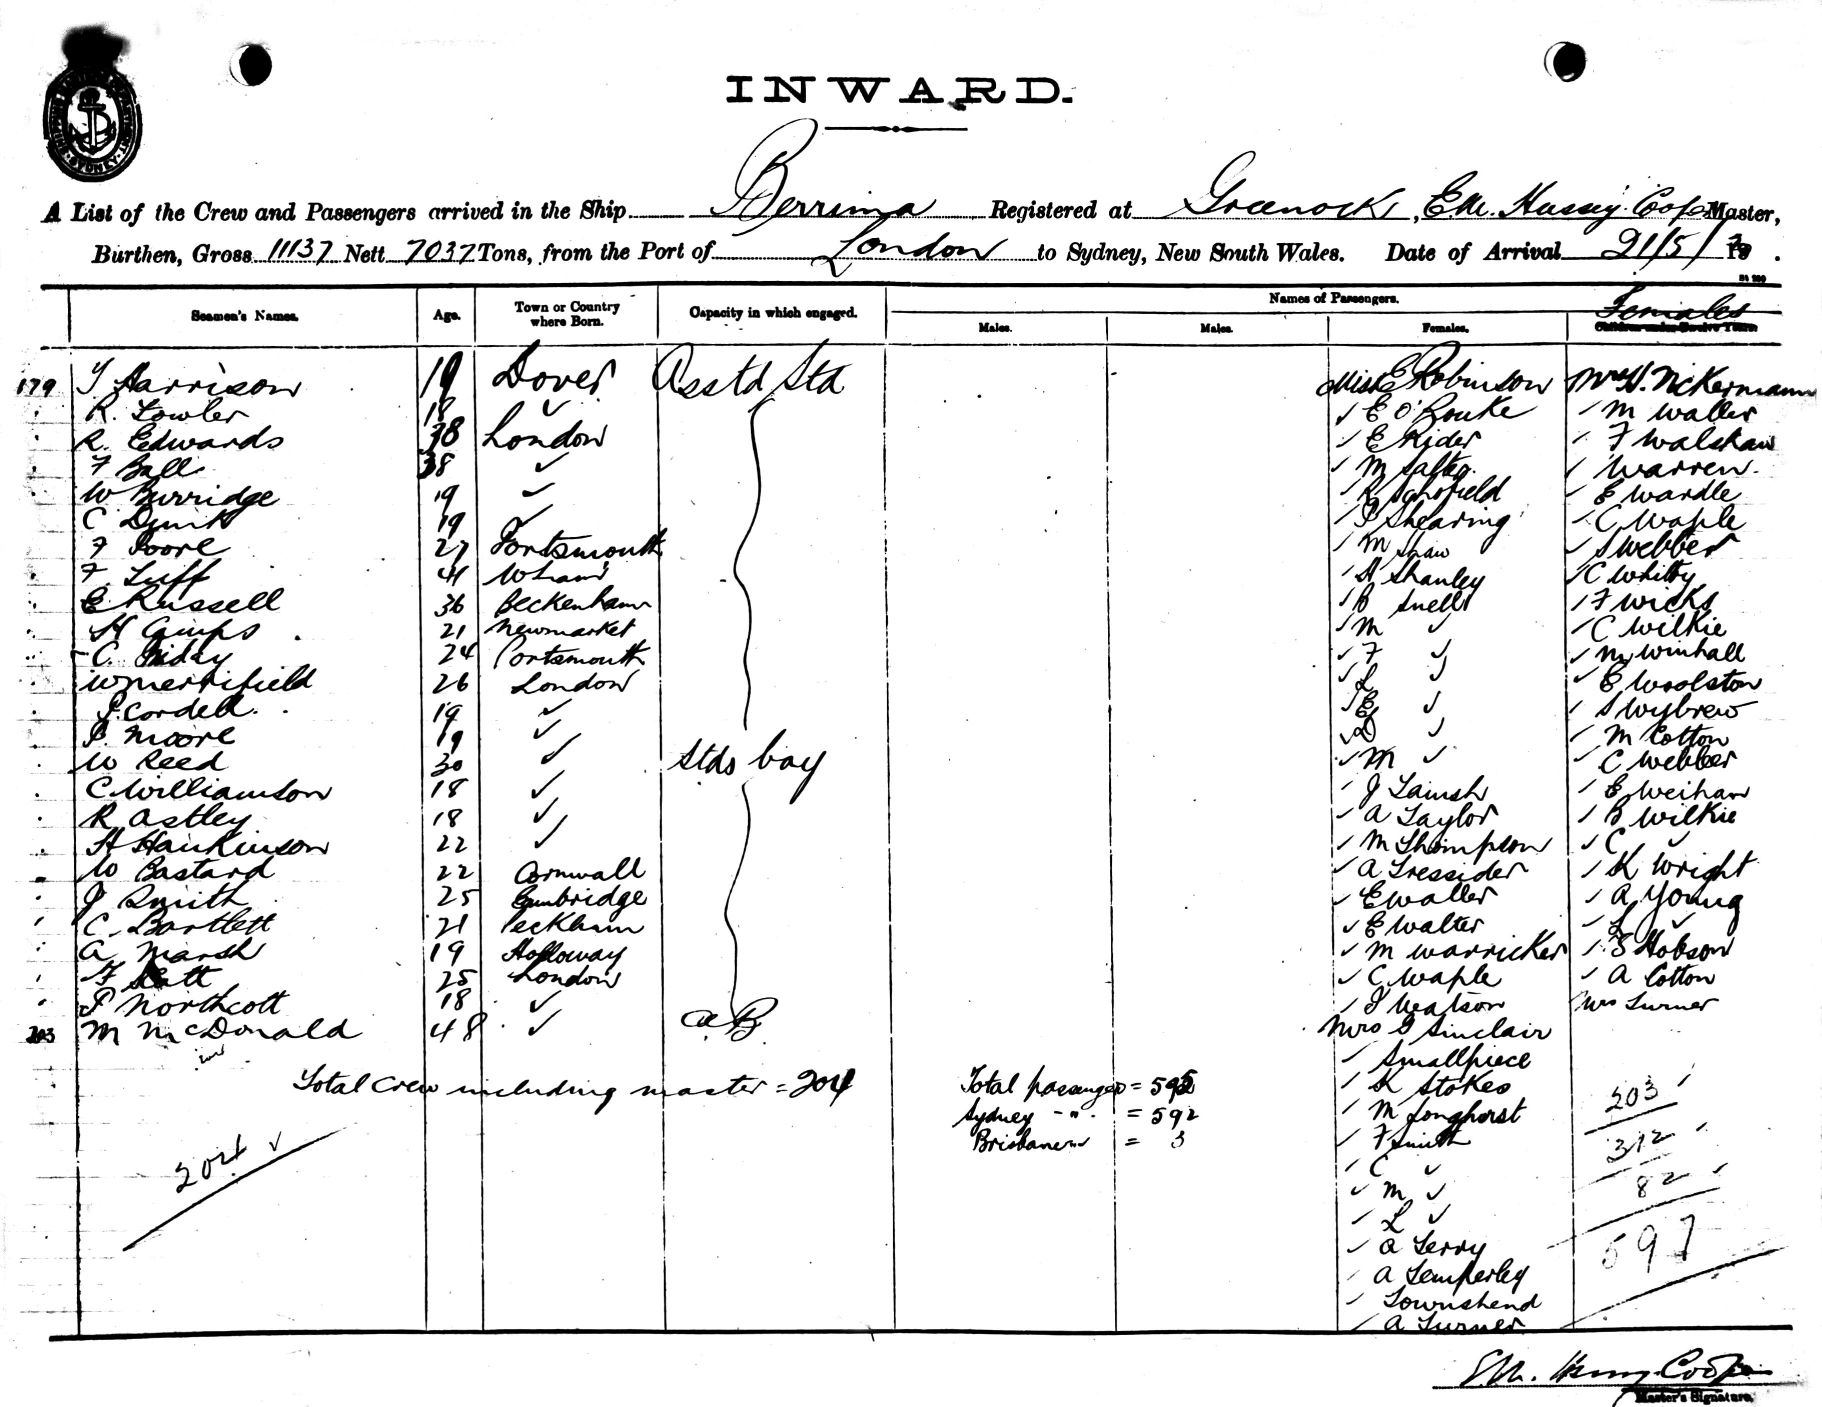 INWARD.
A List of the Crew and Passengers arrived in the Ship Berrima Registered at Greenock, E.M. Hussey Master,
Burthen, Gross 11137 Nett 7037 Tons, from the Port of London to Sydney, New South Wales. Date of Arrival 21/5/
Seamen's Names. Age. Town or Country where Born. Capacity in which engaged. Names of Passengers.
Males. Males. Females. Females
179 T Harrison 19 Dover Asstd Std Miss E Robinson Mrs
R. Fowler 18 ✓ ✓ E O'Rouke ✓ M Waller
R. Edwards 38 London ✓ E Rider ✓ F Walshaw
F Ball 38 ✓ ✓ M ✓ Warren
W Burridge 19 ✓ ✓ R Schofield ✓ E Wardle
C 19 ✓ ✓ P Shearing ✓ C Waple
F Poore 27 Portsmouth ✓ M Shaw ✓ S Webber
F. Tuff 41 ✓ A Shanley ✓ C Whitby
E Russell 36 Beckenham ✓ B Snell ✓ F Wicks
H Camps 21 Newmarket ✓ M ✓ ✓ C Wilkie
C. Friday 24 Portsmouth ✓ F ✓ ✓ M Winhall
W Merrifield 26 London ✓ L ✓ ✓ E Woolston
P. Cordell 19 ✓ ✓ E ✓ ✓ S Wybrew
P. Moore 19 ✓ ✓ D ✓ ✓ M Cotton
W Reed 30 ✓ Stds boy ✓ M ✓ ✓ C Webber
C Williamson 18 ✓ ✓ J ✓ E
R Astley 18 ✓ ✓ A Taylor ✓ B Wilkie
H Hankinson 22 ✓ ✓ M Thompson ✓ C ✓
W Bastard 22 Cornwall ✓ A Tressider ✓ K Wright
J Smith 25 Cambridge ✓ E Waller ✓ A Young
C. Bartlett 21 Peckham ✓ E Walter ✓ L ✓
A Marsh 19 Holloway ✓ M Warricker ✓ S Hobson
F 25 London ✓ C Waple ✓ A Cotton
P Northcott 18 ✓ ✓ J Watson Mrs Turner
203 M McDonald 48 ✓ AB Mrs G Sinclair
✓ Smallpiece
Total Crew including master = 204 Total passengers = 595 ✓ K Stokes 203
Sydney " = 592 ✓ M Longhorst
Brisbane = 3 ✓ F Smith 312
204 ✓ ✓ C ✓
✓ M ✓ 82
✓ L ✓
✓ A Terry 597
✓ A Temperley
✓ Townshend
✓ A Turner
Master's Signature.